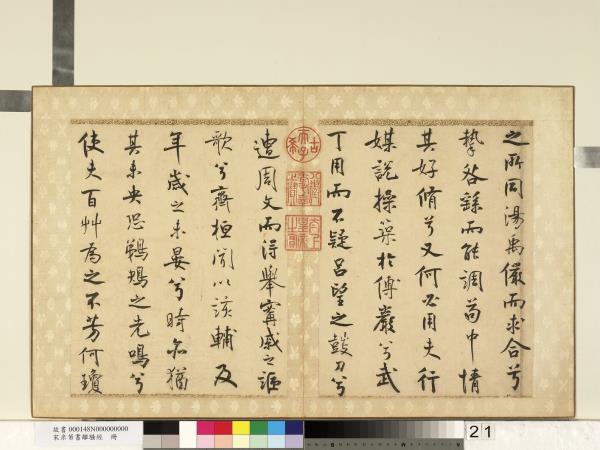 之所同湯禹儼而求合兮
摯咎繇而能調苟中情
其好脩兮又何必用夫行
媒說操築於傅巖兮武
丁用而不疑呂望之鼓刀兮
古希天子
遭周文而得舉甯戚之謳
歌兮齊桓聞以該輔及
年歲之未晏兮時亦猶
其未央恐鵜鴂之先鳴兮
使夫百艸為之不芳何瓊
故書 000148N000000000
宋米芾書離騷經 冊
21